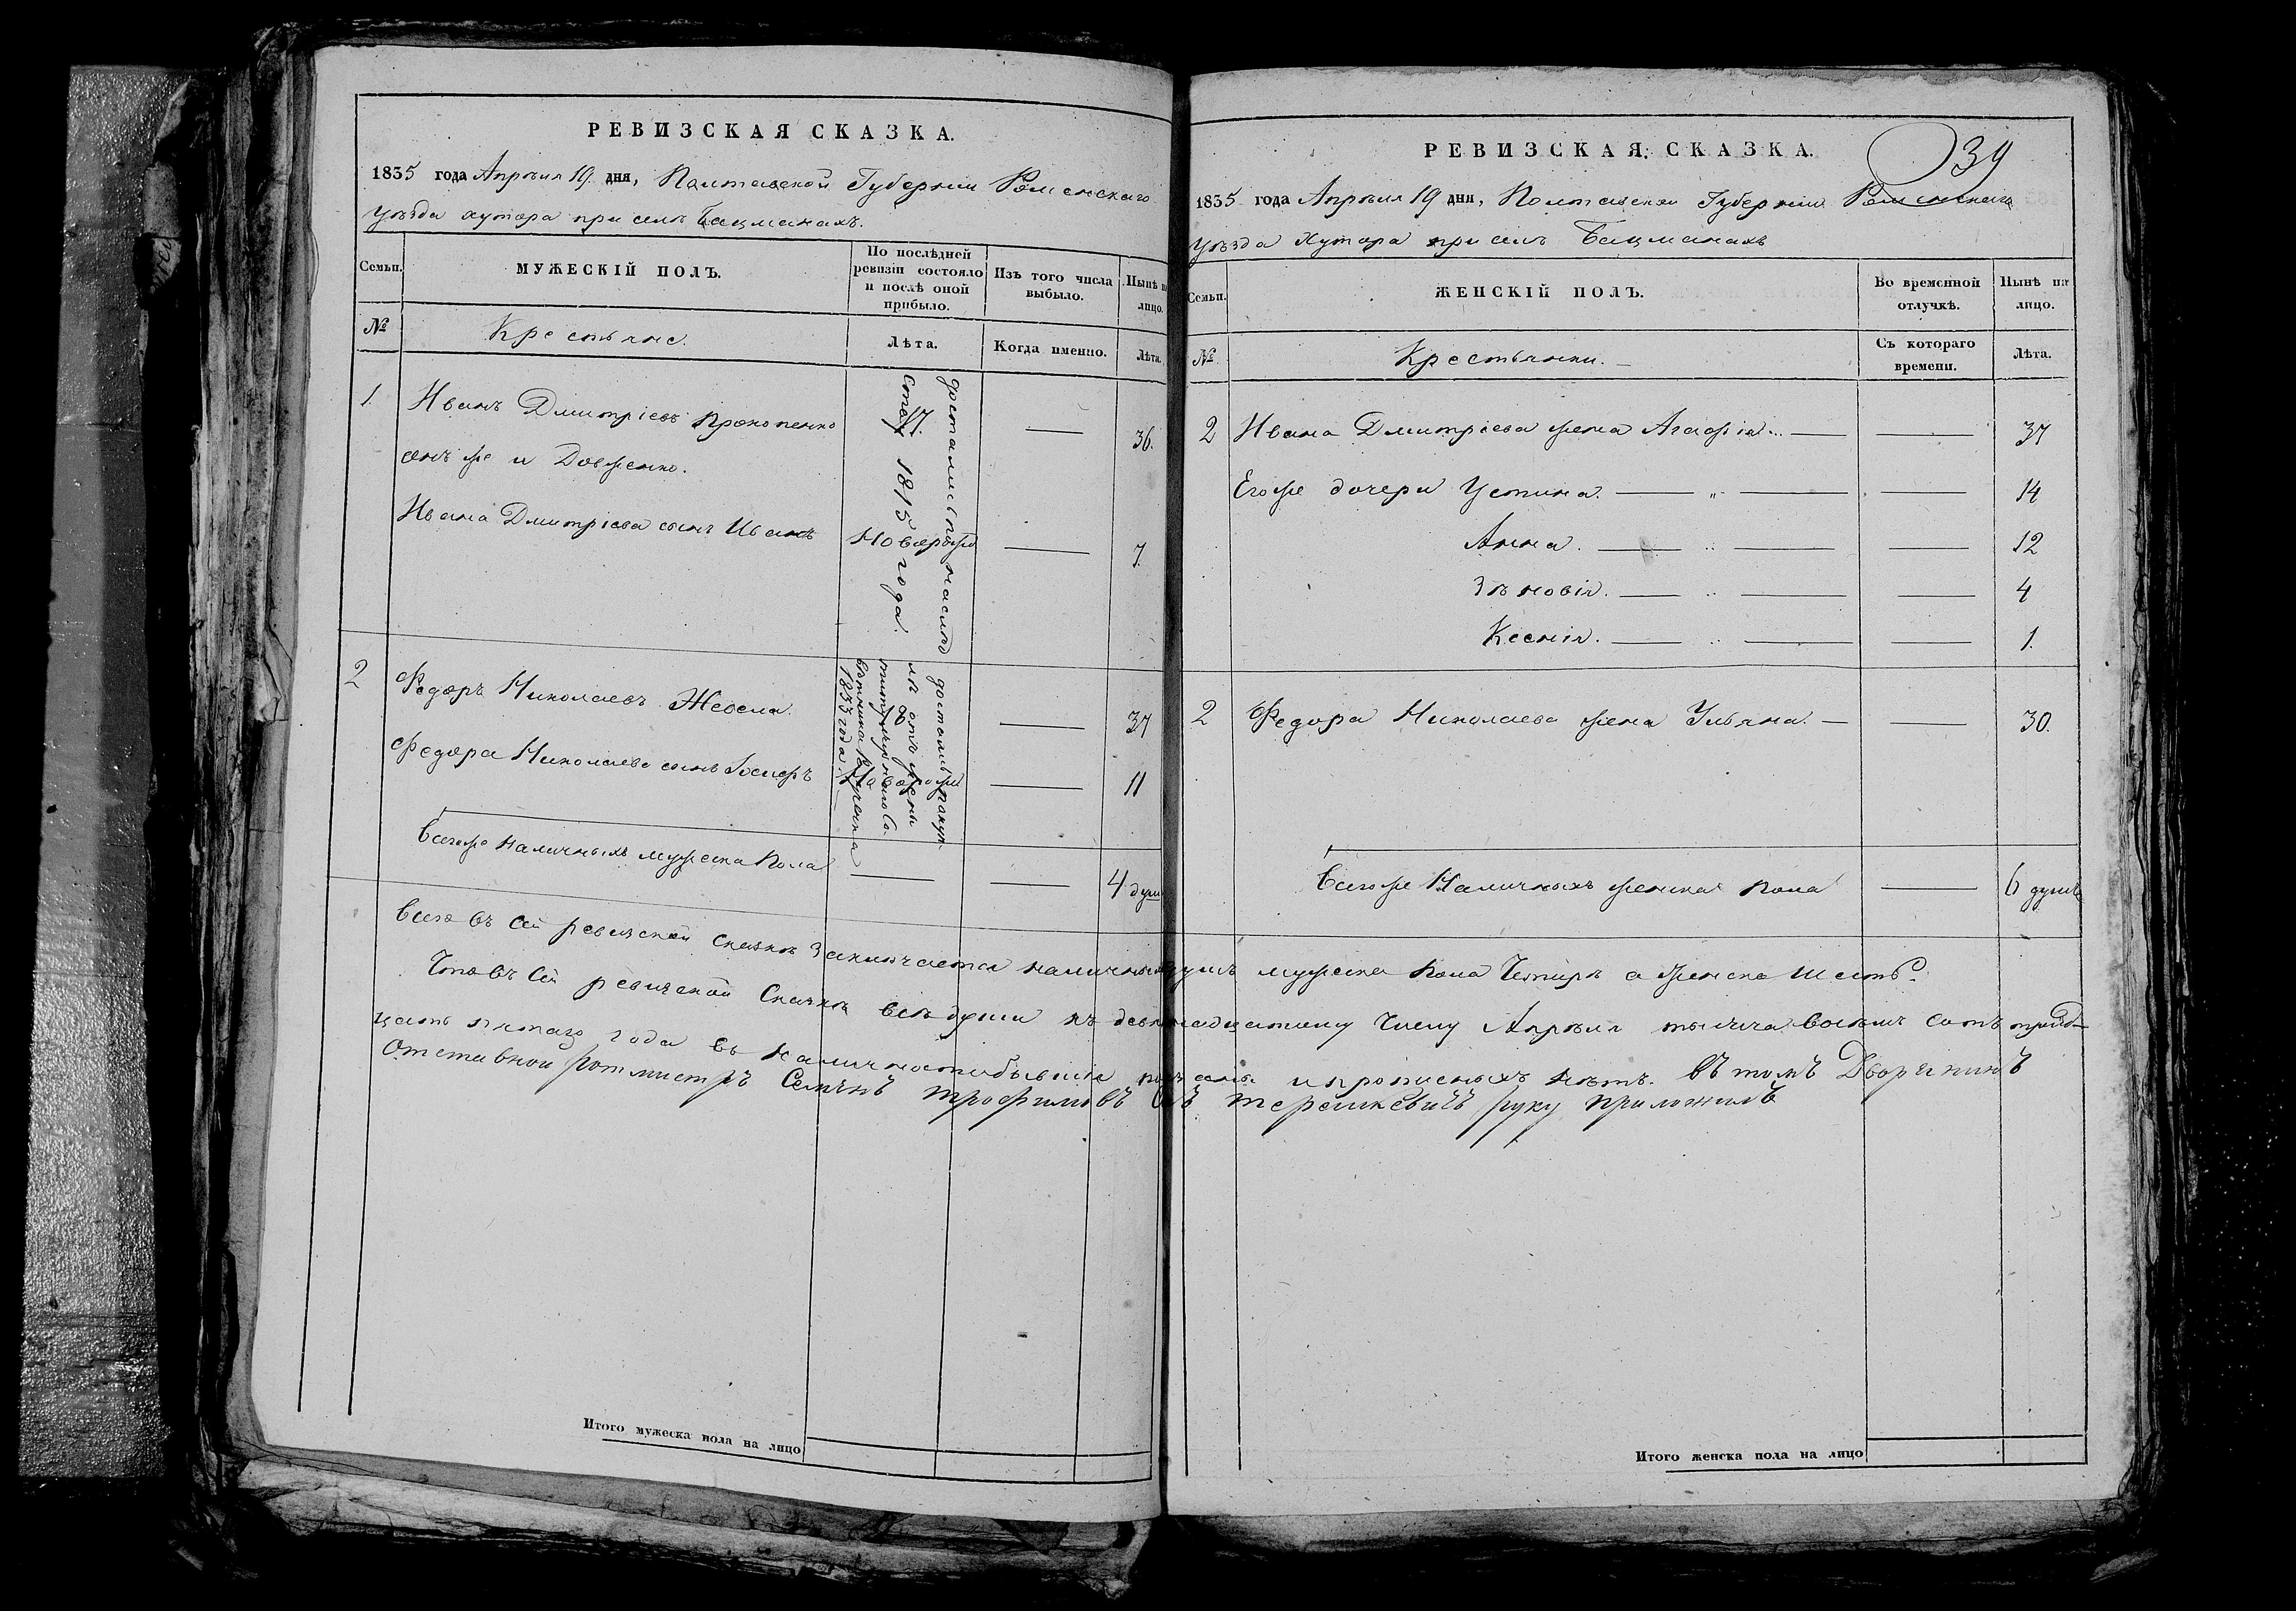 РЕВИЗСКАЯ СКАЗКА.
1835 года Апрѣля 19 дня, Полтавской Губернии Роменского
уѣзда хутора при селѣ Бацманахъ.
Семьи.
МУЖЕСКІЙ ПОЛЪ.
По послѣдней
ревизіи состояло
и послѣ оной
прибыло.
Изъ того числа
выбыло.
Нынѣ на
лицо.
№
Крестьяне.
Лѣта.
Когда именно.
Лѣта.
1.
Иванъ Дмитріевъ Прокопенко
17.
36.
онъ же и Довженко.
Ивана Дмитріева сынъ Иванъ
Новорож
7.
достались по наслѣд
ству 1815 года.
2
Федоръ Николаевъ Жебела.
37
Федора Николаева сынъ Іосифъ
Новорож
11
достались покуп
1833 года.
Всего наличныхъ мужеска пола
4 души
РЕВИЗСКАЯ СКАЗКА.
39
1835 года Апрѣля 19 дня, Полтавской Губернии Роменского
уѣзда Хутора при селѣ Бацманахъ
Семьи.
ЖЕНСКІЙ ПОЛЪ.
Во временной
отлучкѣ.
Нынѣ на
лицо.
№
Крестьянки.
Съ котораго
времени.
Лѣта.
2
Ивана Дмитріева жена Агафія
37
Его же дочери Устина.
14
Анна.
12
Зѣновія.
4
Ксенія.
1.
2
Федора Николаева жена Ульяна.
30.
Всего же Наличныхъ женска пола
6 душъ
Всего въ сей ревизской сказкѣ заключается наличныхъ душъ мужеска пола Четыре а женска шесть.
Что въ сей ревизской Сказкѣ всѣ души къ девятнадцатому числу Апрѣля тысяча восемь сотъ трид
цать пятаго года въ наличности бывшіе показаны и прописныхъ нѣтъ. Въ томъ Дворянинъ
Отставной ротмистръ Семенъ Трофимовъ Сынъ Терешкевичъ руку приложилъ
Итого мужеска пола на лицо
Итого женска пола на лицо